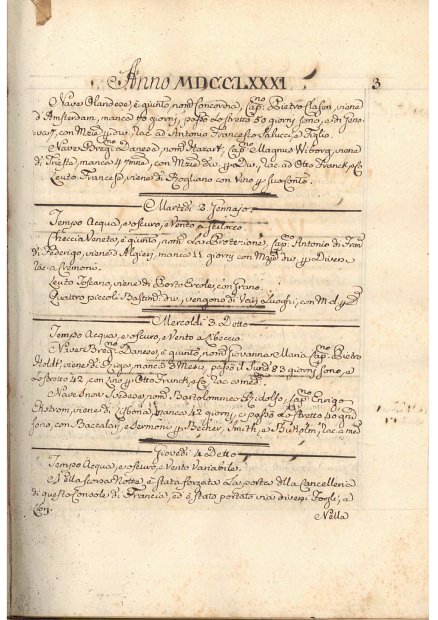 Anno MDCCLXXXI
3
Nave Olandese, è giunto, nom.ª Concordia, Cap.no Pietro Clason, viene
d'Amsterdam, manca 90 giorni, passò lo stretto 50 giorni sono, e di
con Mzie p. div., Rac. ad Antonio Francesco Salucci, e Figlio.
Nave Breg.no Danese, nom.ª Cap.no Magnus Wiborg, viene
di Trieste, manca 4 mna, con Mzie div. p. Div., Rac. ad Otto Franck, e C.
Leuto Francese, viene di Rogliano con Vino p. suo Conto.
Martedì 2 Gennajo
Tempo Acqua, e oscuro, e Vento a
Checcia Veneta, è giunto, nom.ª La Protezione, Cap.no Antonio di Fran.
di Federigo, viene d'Algieri, manca 11 giorni con Mzie div. p. Diversi
Rac. a
Leuto Toscano, viene di Porto Ercole, con Grano.
Quattro piccoli Bastim.ti div., vengono di Varj Luoghi, con M. d. p. D.
Mercoldì 3 Detto
Tempo Acqua, e oscuro, e Vento a Libeccio
Nave Breg.no Danese, è giunto, nom.ª Giovanna Maria Cap.no Pietro
Holdt, viene di Riga, manca 3 Mesi, passò il Sund 83 giorni sono, e
Lo Stretto 42, con Lino p. Otto Franck, e C. Rac. a med.
Nave Snow Svedese, nom.ª Bartolommeo Ridolfo, Cap.no Enrigo
viene di Lisbona, manca 42 giorni, e passò lo Stretto 40 gni
sono, con Baccalari, e Sermoni p. Becher, Smith, e Rac. a med.
Giovedì 4 Detto
Tempo Acqua, e oscuro, e Vento Variabile.
Nella scorsa Notte è stata forzata La porta della Cancelleria
di questo Console di Francia, ed è stato portato via diversi Fogli, e
Nella